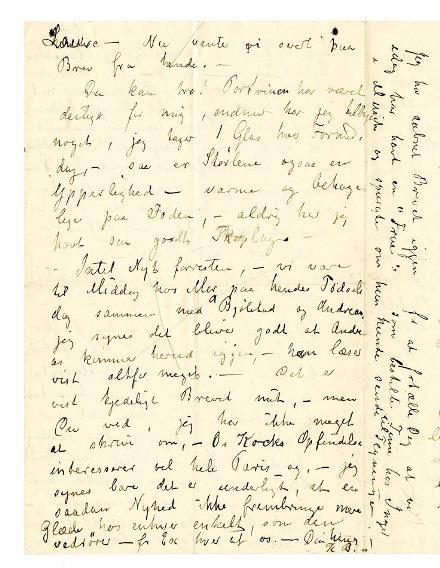 Louvre — Nu vente vi svært paa
Brev fra hende. —
Du kan tro! Portvinen har været
deiligt for mig, endnu har jeg
noget, jeg tager 1 Glas hver Formid-
dag, — saa er Støvlene ogsaa en
Ypperlighed — varme og behage-
lige paa Foden, — aldrig har jeg
havt saa godt
— Intet Nyt forresten, — vi vare
til Middag hos Mor paa hendes Fødsels-
dag sammen med Bjølstad og Andreas
jeg synes det bliver godt at Andre-
as kommer herned igjen, — han læser
vist altfor meget. — Det er
vist kjedeligt Brevet mit, — men
Du ved, jeg har ikke meget
at skrive om, — Dr Kocks Opfindelse
interesserer vel hele Paris og, — jeg
synes bare det er underligt, at en
saadan Nyhed ikke frembringer mere
Glæde hos enhver enkelt, som den
vedrører — for Ex hver af os. — Din
Jeg har aabnet Brevet igjen for at fortælle Dig at vi
idag har havt en "Frue", som bestilte hos Inger
og spurgte om hun kunde